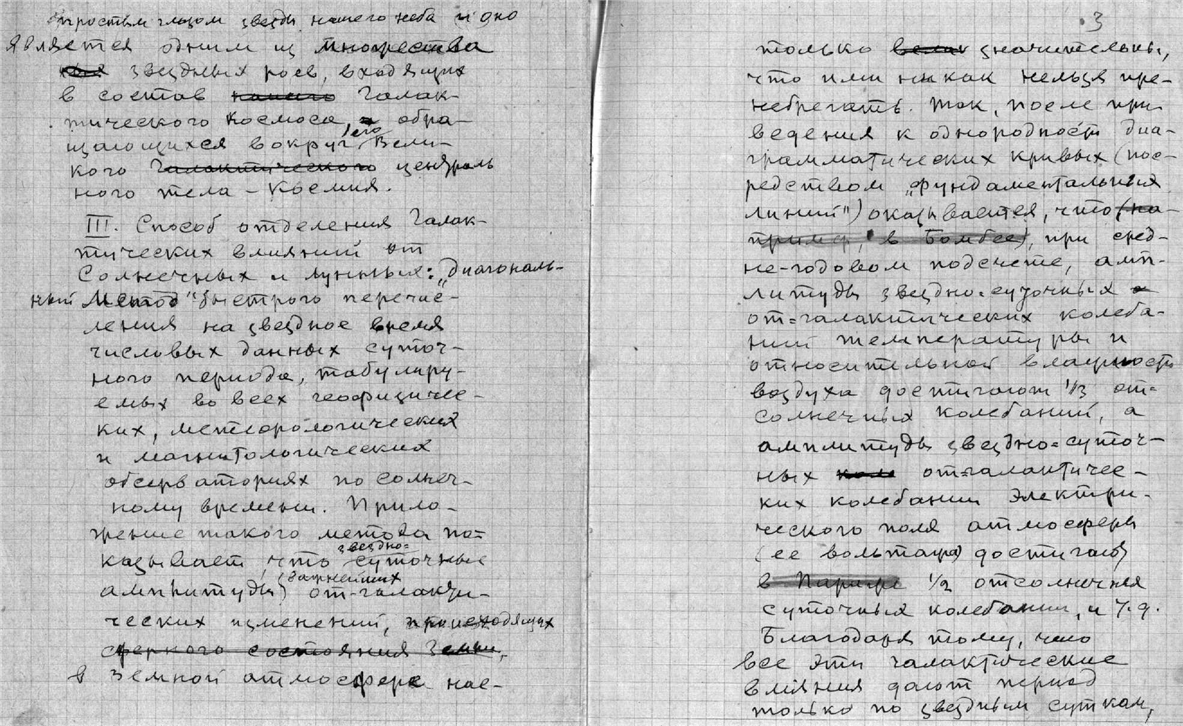 простым глазом звезды нашего неба и оно
является одним из множества
звездных роев, входящих
в состав нашего Галак-
тического Космоса, обра-
щающихся вокруг его Вели-
кого Галактического централь
ного тела – Космия.
III. Способ отделения Галак-
тических влияний от
Солнечных и лунных: „диагональ-
ный метод" быстрого перечис-
ления на звездное время
числовых данных суточ-
ного периода, табулиру-
емых во всех геофизичес-
ких, метеорологических
и магнитологических
обсерваториях по солнеч-
ному времени. Прило-
жение такого метода по-
казывает, что звездно-суточные
амплитуды важнейших от-галакти-
ческих изменений, происходящих
состояния Земли,
в Земной атмосфере нас-
3
только значительны,
что ими никак нельзя пре-
небрегать. Так, после при-
ведения к однородност диа-
грамматических кривых (пос-
редством „фундаментальных
линий") оказывается, что (на-
пример, в Бомбее), при сред-
не-годовом подсчете, амп-
литуды звездно=суточных
от=галактических колеба-
ний температуры и
относительной влажности
воздуха достигают 1/3 от=
солнечных колебаний, а
амплитуды звездно=суточ-
ных от=галактичес-
ких колебании электри-
ческого поля атмосферы
(ее вольтажа) достигают
в Париже 1/2 отсолнечных
суточных колебании, и т.д.
Благодаря тому, что
все эти галактические
влияния дают период
только по звездным суткам,